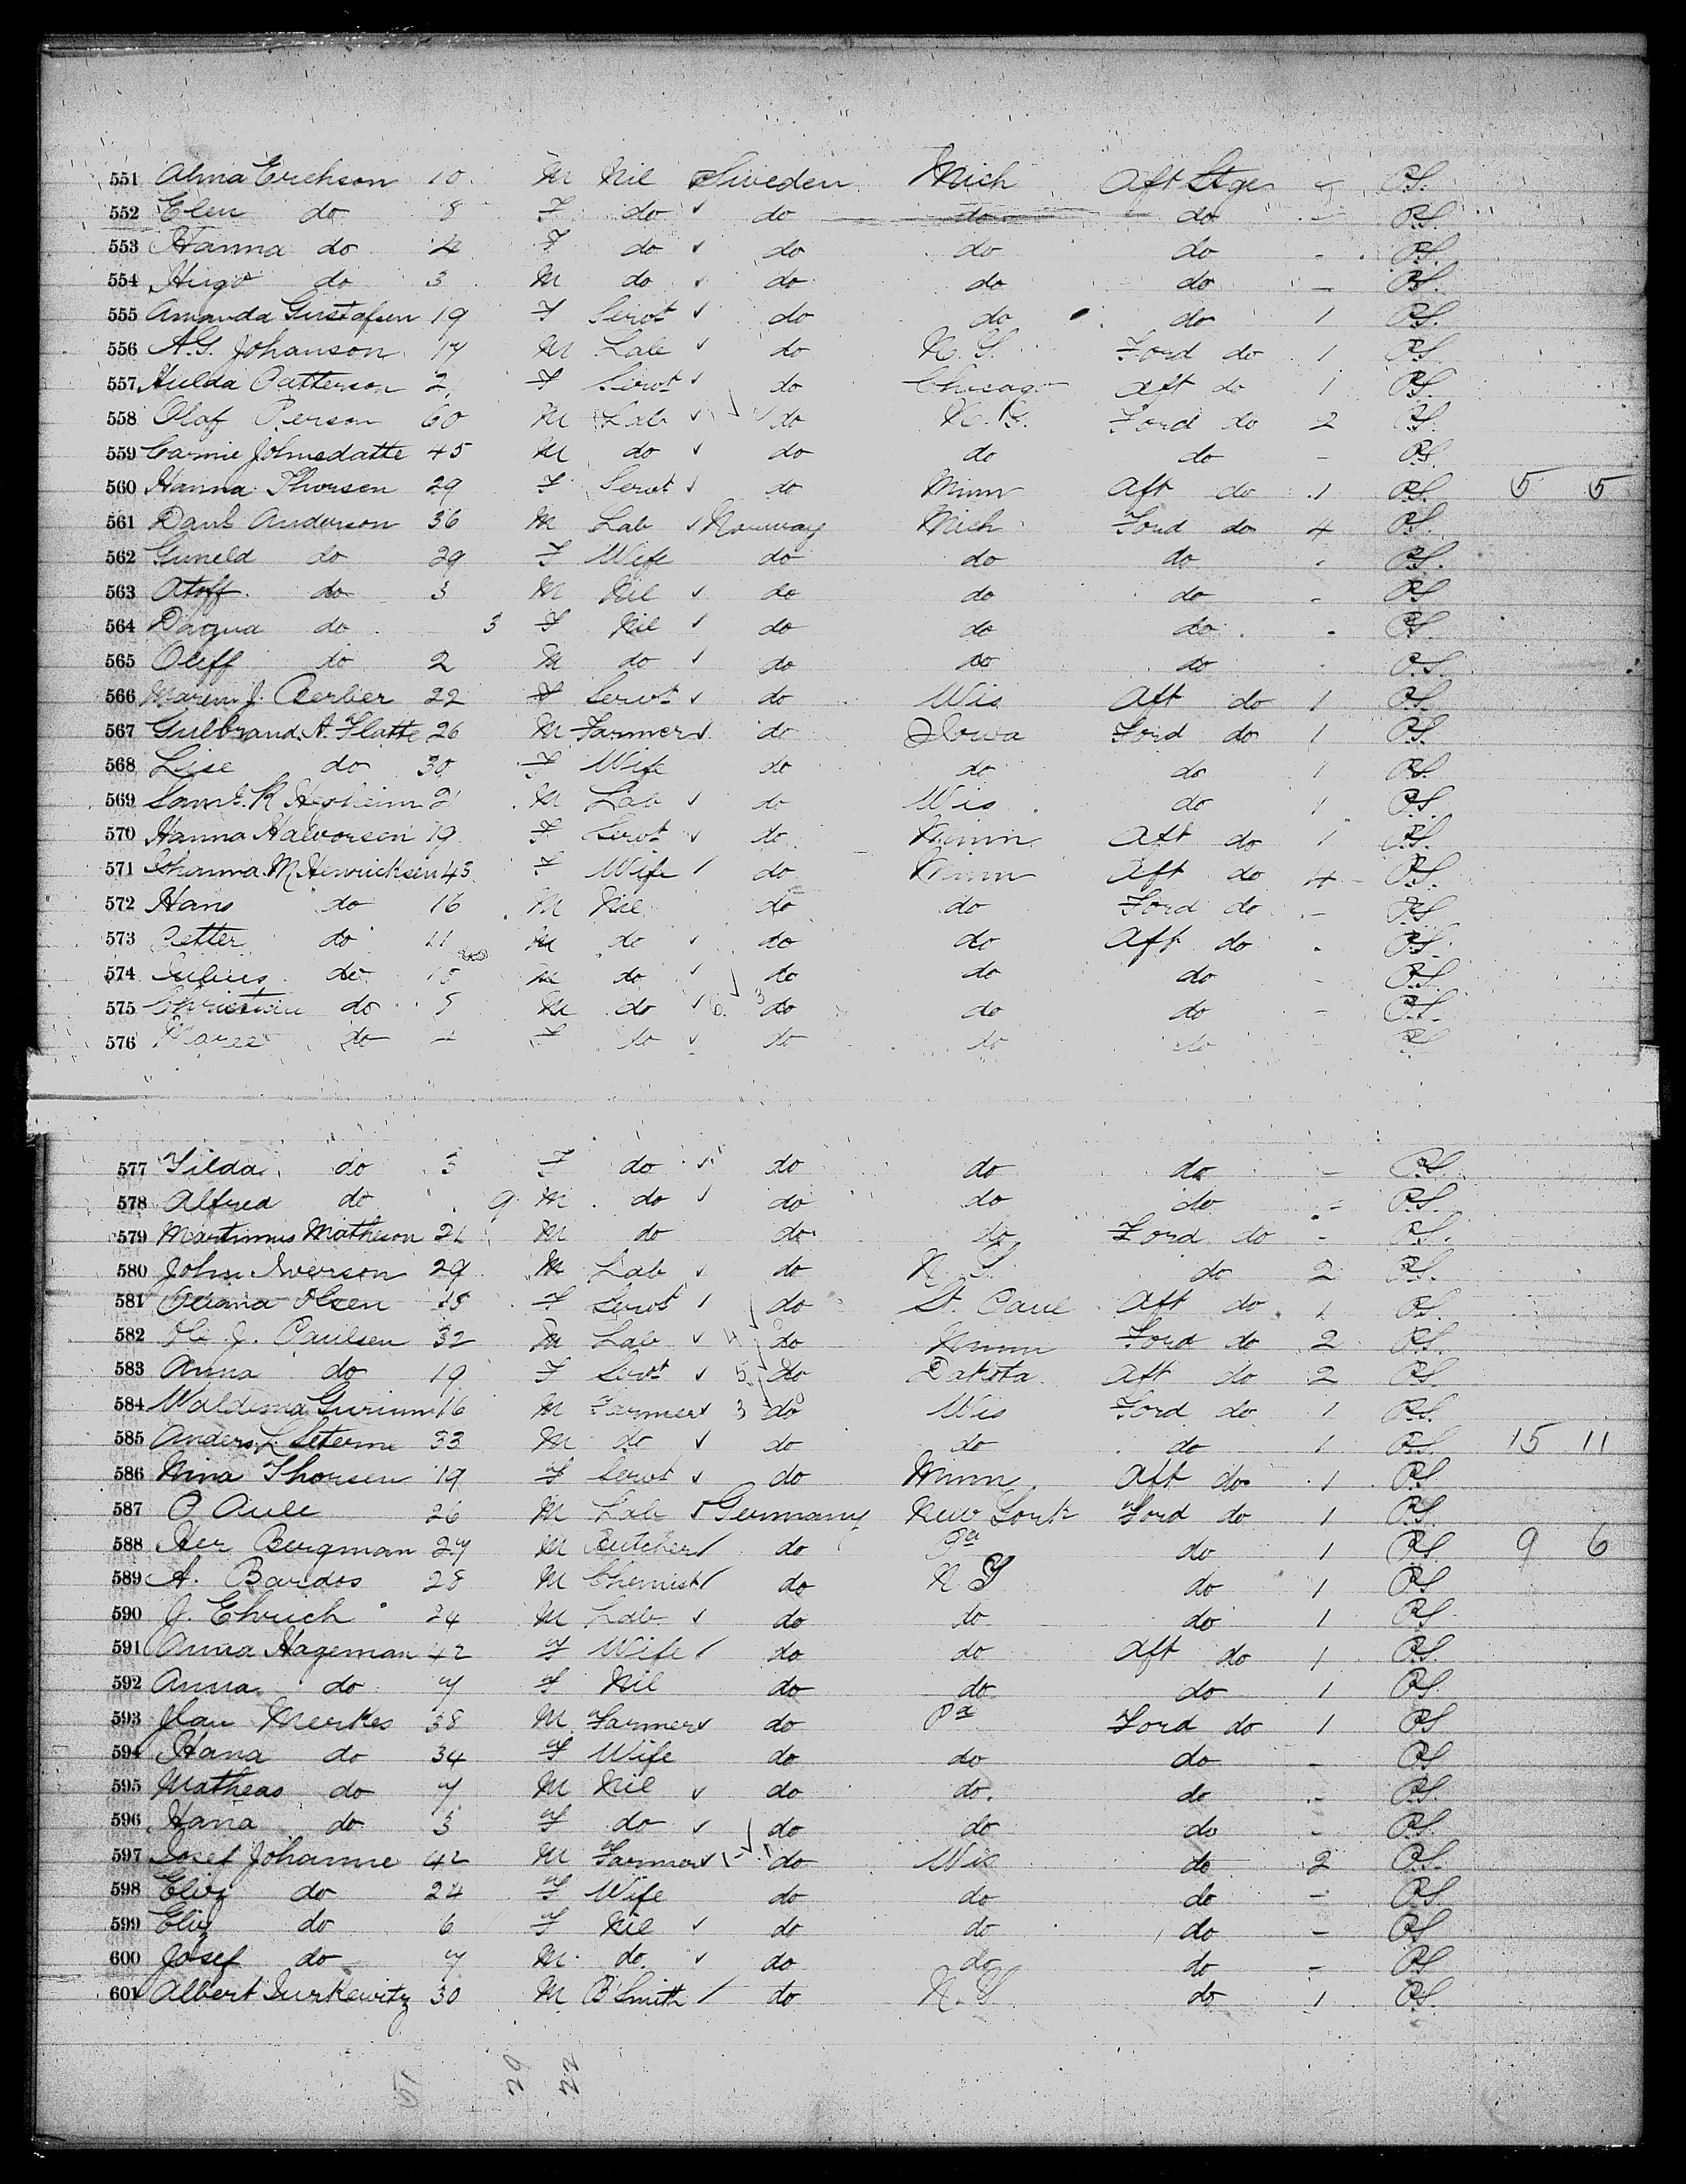 551 Alma Erickson 10 M Nil Sweden Mich Aft Stge - P.S.
552 Elen do 8 F do do do do - P.S.
553 Hanna do 4 F do do do do - P.S.
554 Hugo do 3 M do do do do - P.S.
555 Amanda Gustafsen 19 F Servt do do do 1 P.S.
556 A.G. Johanson 17 M Lab do N.Y. Ford do 1 P.S.
557 Hulda Patterson 2 F Servt do Chicago Aft do 1 P.S.
558 Olof Person 60 M Lab do Ford do 2 P.S.
559 Carnie Johnsdatte 45 M do do do do - P.S.
560 Hanna Thorsen 29 F Servt do Minn Aft do 1 P.S. 5 5
561 Danl Anderson 36 M Lab Norway Mich Ford do 4 P.S.
562 Guneld do 29 F Wife do do do - P.S.
563 Atoff do 3 M Nil do do do - P.S.
564 Dagna do 3 F Nil do do do - P.S.
565 Oliff do 2 M do do do do - P.S.
566 Maren J. Berber 22 F Servt do Wis Aft do 1 P.S.
567 Gulbrand A. Flatte 26 M Farmer do Iowa Ford do 1 P.S.
568 Lise do 30 F Wife do do do 1 P.S.
569 Saml. K Hegheim 21 M Lab do Wis do 1 P.S.
570 Hanna Halvorsen 19 F Servt do Minn Aft do 1 P.S.
571 Johanna M Henricksen 43 F Wife do Minn Aft do 4 P.S.
572 Hans do 16 M Nil do do Ford do - P.S.
573 Petter do 11 M do do do Aft do - P.S.
574 Julius do 10 M do do do do - P.S.
575 Christian do 8 M do 6 3 do do do - P.S.
576 Maree do 4 F do do do do - P.S.
577 Tilda do 3 F do do do do - P.S.
578 Alfred do 9 M do do do do - P.S.
579 Martinus Matheson 21 M do do do Ford do - P.S.
580 John Iverson 29 M Lab do N.Y. do 2 P.S.
581 Oliana Olsen 18 F Servt do St. Paul Aft do 1 P.S.
582 Ole J. Paulsen 32 M Lab 4 do Minn Ford do 2 P.S.
583 Anna do 19 F Servt 5 do Dakota Aft do 2 P.S.
584 Waldema 16 M Farmer 3 do Wis Ford do 1 P.S.
585 Anders L Seterne 33 M do do do do 1 P.S. 15 11
586 Nina Thorsen 19 F Servt do Minn Aft do 1 P.S.
587 O Aule 26 M Lab Germany New York Ford do 1 P.S.
588 Her Bergman 27 M Butcher do Pa do 1 P.S. 9 6
589 A. Bardos 28 M Chemist do N.Y do 1 P.S.
590 J. Ehrich 24 M Lab do do do 1 P.S.
591 Anna Hageman 42 F Wife do do Aft do 1 P.S.
592 Anna do 7 F Nil do do do 1 P.S.
593 Jean Merkes 38 M Farmer do Pa Ford do 1 P.S
594 Hana do 34 F Wife do do do - P.S.
595 Matheas do 7 M Nil do do. do - P.S.
596 Hana do 3 F do do do do - P.S.
597 Josef Johanne 42 M Farmer do Wis do 2 P.S.
598 Eliz do 24 F Wife do do do - P.S.
599 Eliz do 6 F Nil do do do - P.S
600 Josef do 7 M do do do do - P.S
601 Albert Jurkewitz 30 M B Smith do N.Y. do 1 P.S.
51 29 22